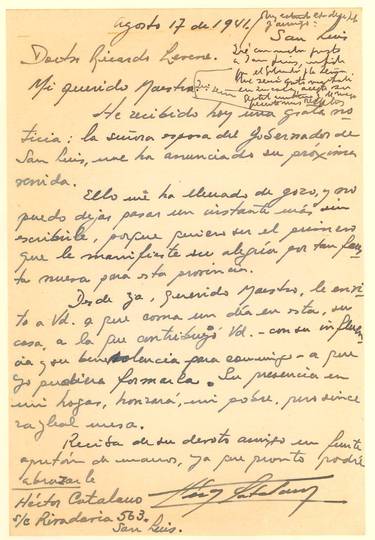 agosto 17 de 1941.
San Luis
Doctor Ricardo Levene.
Mi querido Maestro:
He recibido hoy una grata no
ticia: la señora esposa del Gobernador de
San Luis, me ha anunciado su próxima
venida.
Ello me ha llenado de gozo, y no
puedo dejar pasar un instante más sin
escribirle, porque quiero ser el primero
que le manifieste su alegría por tan faus
ta nueva para esta provincia.
Desde ya, querido Maestro, le invi
to a Vd. a que coma un día en esta, su
casa, a la que contribuyó Vd. - con su influen
cia y su benevolencia para conmigo - a que
yo pudiera formarla. Su presencia en
mi hogar, honrará, mi pobre, pero since
ra y leal mesa.
Reciba de su devoto amigo un fuerte
apretón de manos, ya que pronto podré
abrazarle
Héctor Catalano
s/c Rivadavia 563.
San Luis.